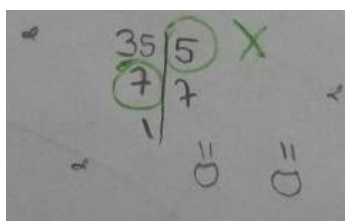 35 | 5 X
7 | 7
1 |